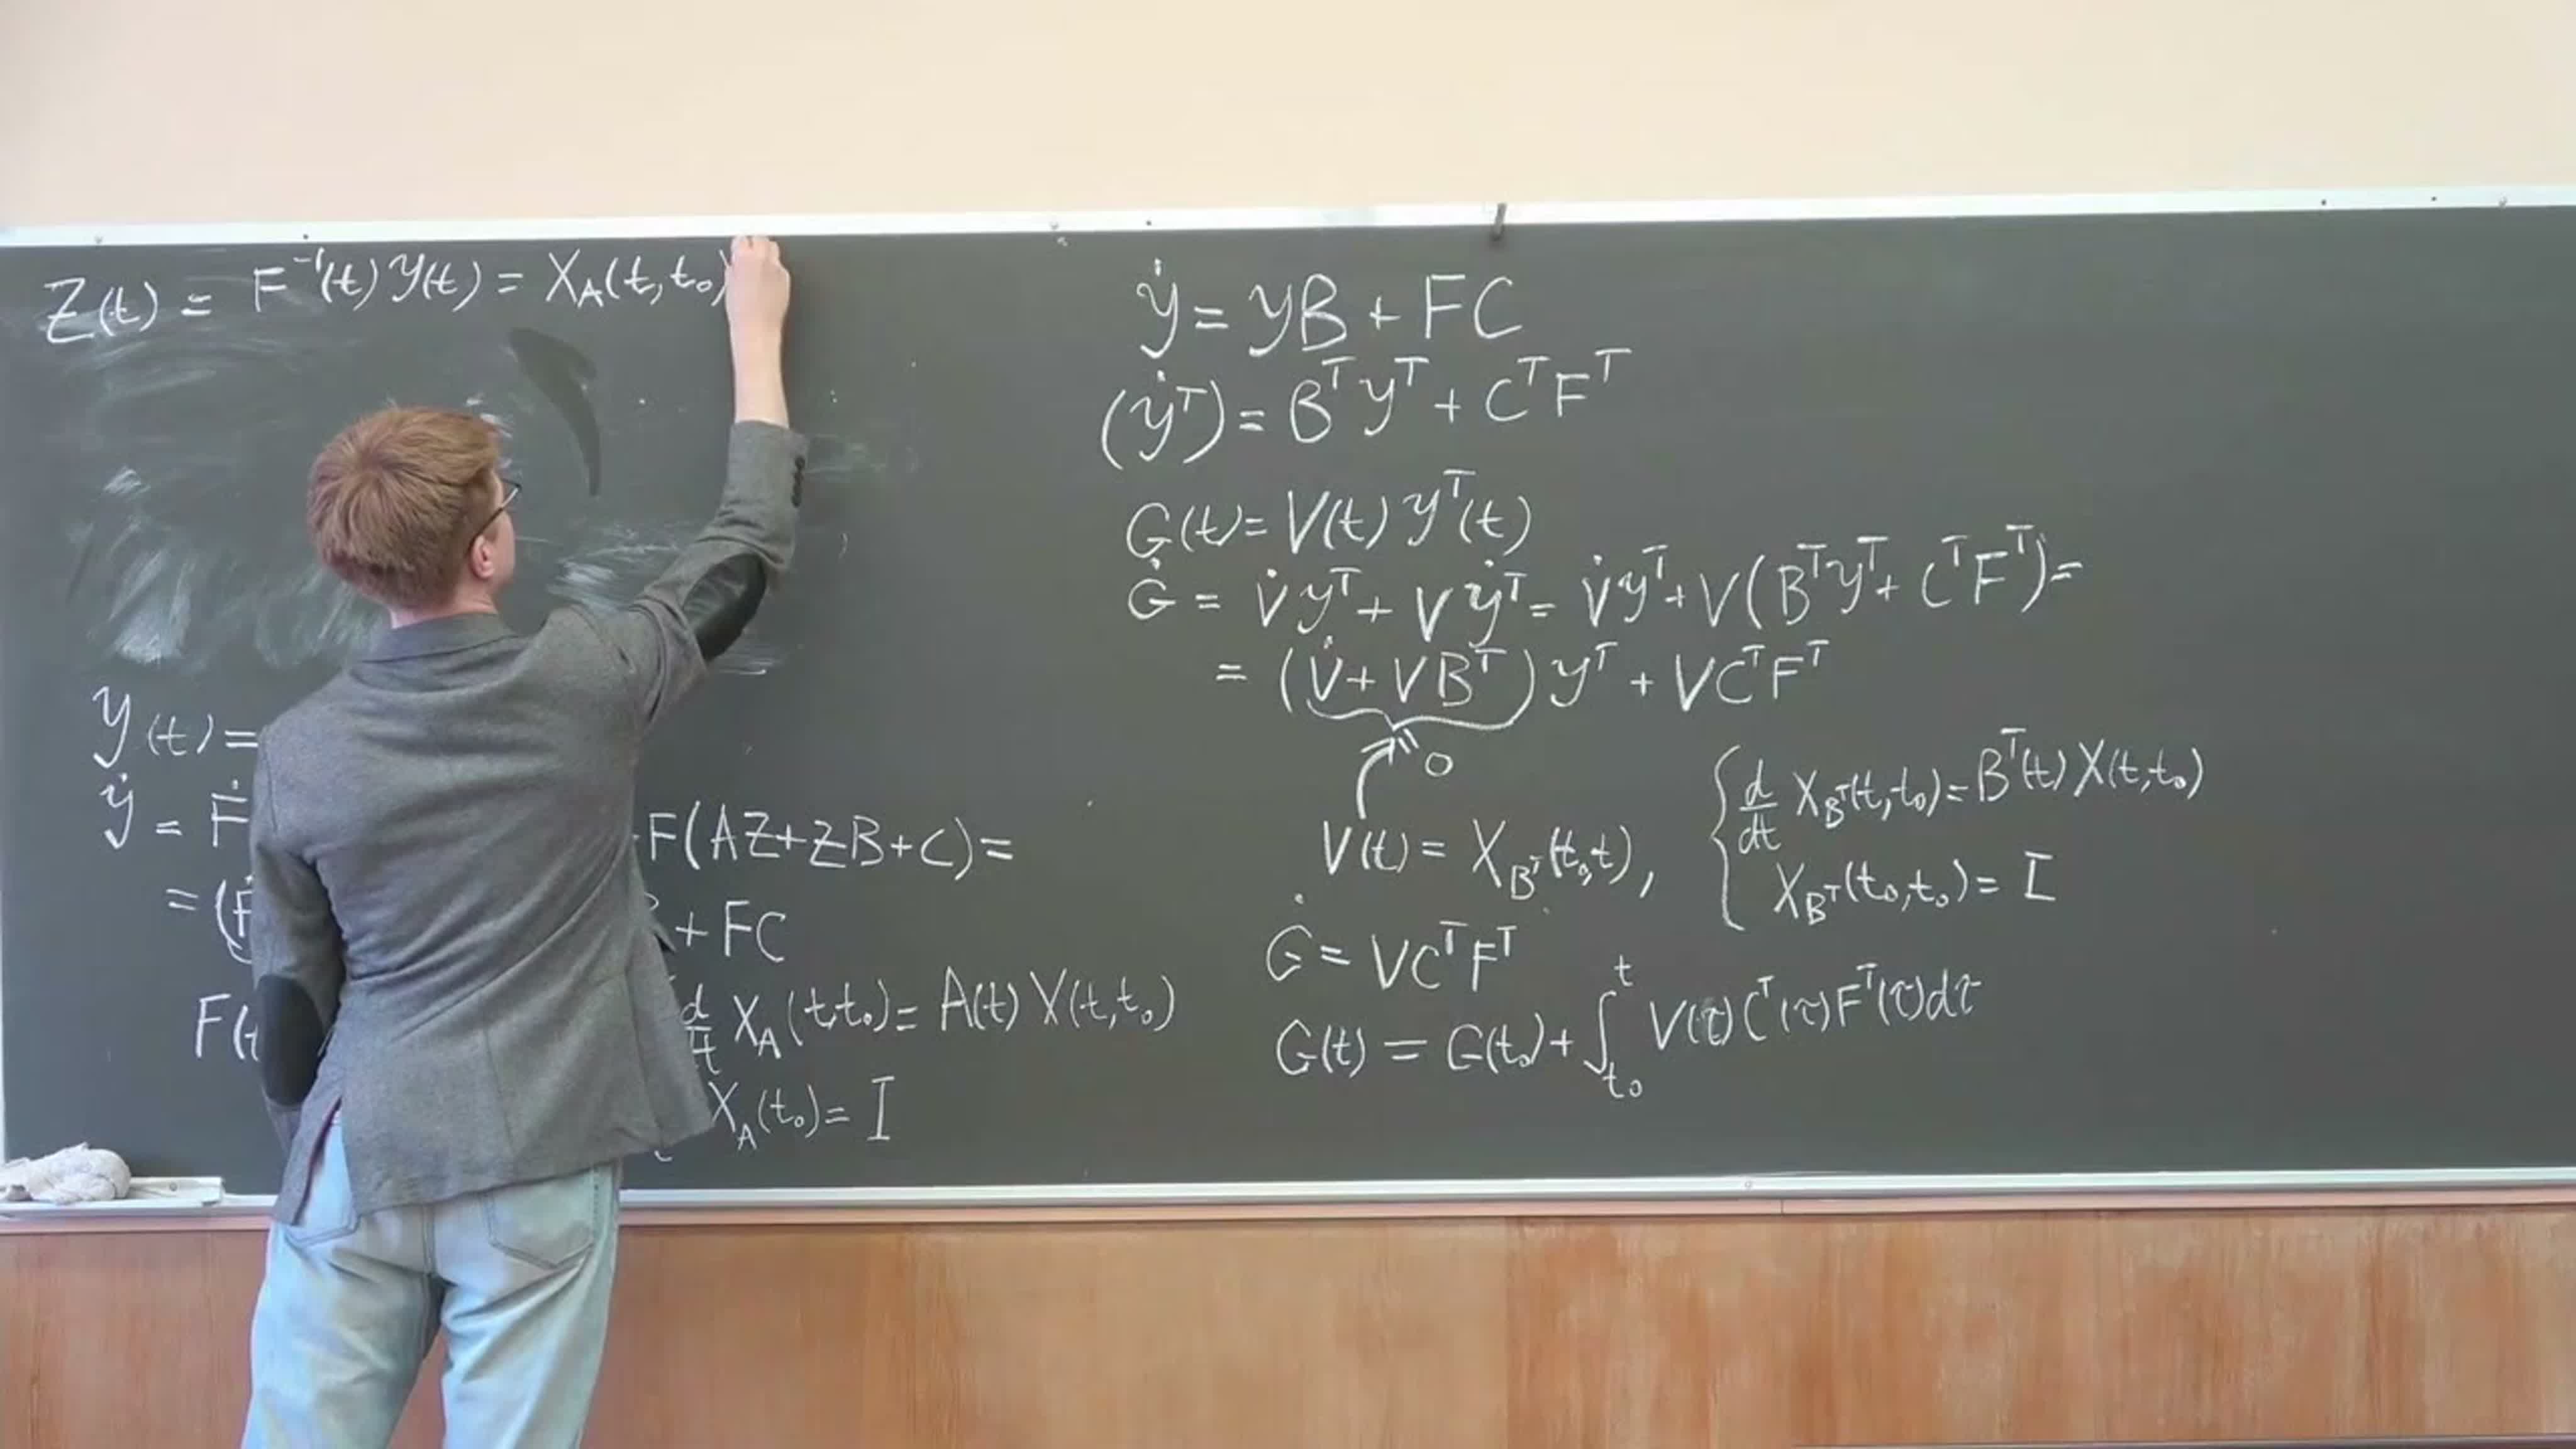 Z(t) = F⁻¹(t) Y(t) = X_A(t, t₀)
Y(t) =
Ẏ = Ḟ
F(AZ + ZB + C) =
= (Ḟ
+ FC
F(t
d/dt X_A(t,t₀) = A(t) X(t,t₀)
X_A(t₀) = I
Ẏ = YB + FC
(Ẏᵀ) = BᵀYᵀ + CᵀFᵀ
G(t) = V(t) Yᵀ(t)
Ġ = V̇Yᵀ + VẎᵀ = V̇Yᵀ + V(BᵀYᵀ + CᵀFᵀ) =
= (V̇ + VBᵀ) Yᵀ + VCᵀFᵀ
" 0
V(t) = X_Bᵀ(t₀,t),
d/dt X_Bᵀ(t,t₀) = Bᵀ(t) X(t,t₀)
X_Bᵀ(t₀,t₀) = I
Ġ = VCᵀFᵀ
G(t) = G(t₀) + ∫_{t₀}^{t} V(τ) Cᵀ(τ) Fᵀ(τ) dτ